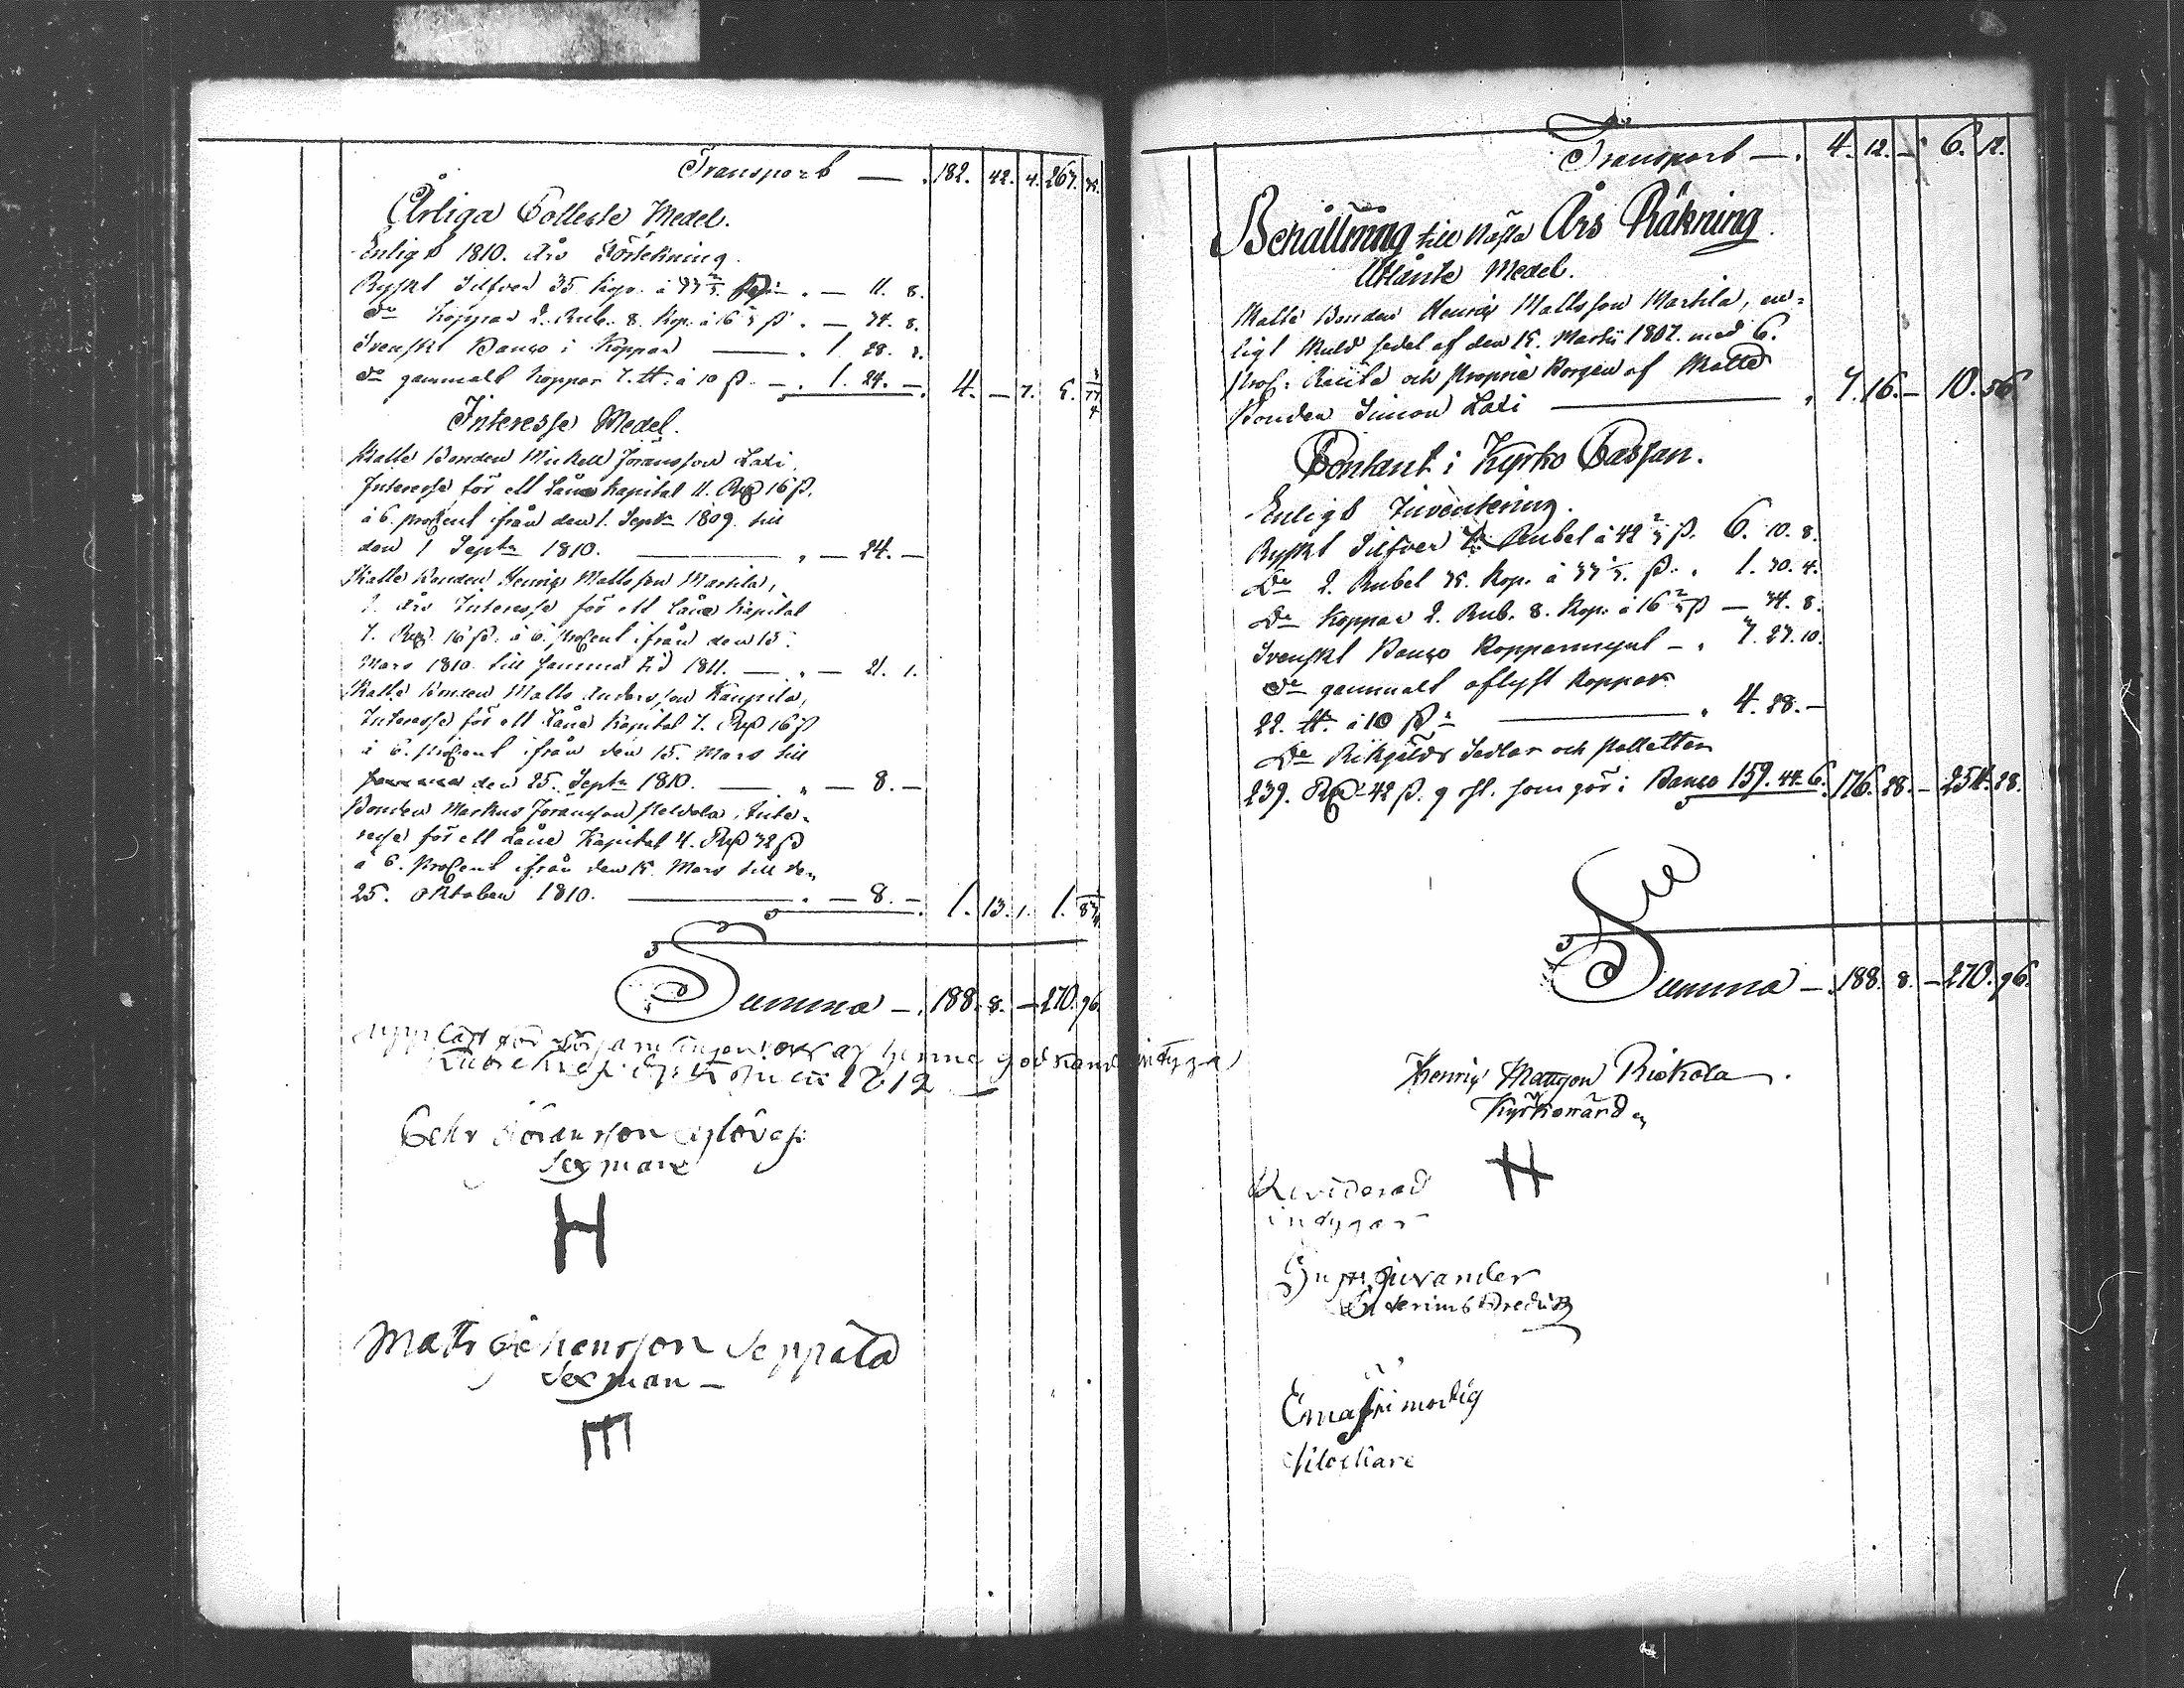 Transport — . 182. 42. 4. 263.
Årliga Collecte Medel.
Enligt 1810. Års Förtekning.
Ryskt Silfver 35 kop. à 33 2/3. — 11. 8.
Do Koppar 2. Rub. 8. Kop. à 16 2/3 ß. — 34. 8.
Svenskt Banco i Koppar — 1. 28.
Do gammalt koppar 7. à 10 ß. — 1. 24. — 4. — 7. 5.
Interesse Medel.
Skatte Bonden Mickell Joransson Laxi
Interesse för ett Låne Kapital 11. Rd 16 ß.
à 6. procent ifrån den 1. Septr 1809. till
den 1 Septr 1810. — 24. —
Skatte Bonden Henric Mattsson Martila,
1. Års Interesse för ett Låne Kapital
7. Rd 16 ß. à 6. procent ifrån den 15.
Mars 1810. till samma tid 1811. — 21. 1.
Skatte Bonden Matts Andersson Kauppila,
Interesse för ett Låne Kapital 7. Rd 16 ß
à 6. procent ifrån den 15. Mars till
den 25. Septr 1810. — 8. —
Bonden Markus Joransson Inte-
resse för ett Låne Kapital 4. Rd 32 ß
à 6. Procent ifrån den 15. Mars till den
25. Oktober 1810. — 8. — 1. 13. 1. 1.
Summa — . 188. 8. — 270. 96.
för Församlingen och af henne godkänd intygar
1812
Göransson
Sexman
H
Matts Johansson Seppälä
Sexman —
Transport — . 4. 12. — 6. 12.
Behållning till nästa Års Räkning.
Utlånte Medel.
Skatte Bonden Henric Mattsson Martila, en-
ligt skuld sedel af den 15. Martii 1807. med 6.
proc. Ränta och proprie Borgen af Skatte
Bonden Simon Laxi — 7. 16. — 10. 56
Contant i Kyrko Cassan.
Enligt Inventering.
Ryskt Silfver Rubel à 42 2/3 ß. 6. 10. 8.
Do 2. Rubel 35. Kop. à 33 ß. 1. 30. 4.
Do Koppar 2. Rub. 8. Kop. à 16 2/3 ß — 34. 8.
Svenskt Banco Kopparmynt — 7. 27. 10.
Do gammalt aflyst Koppar
22. à 10 ß — 4. 28. —
Do Riksgälds Sedlar och Polletter
239. Rd 42 ß. 9 rst. som gör i Banco 159. 44. 6. 176. 28. — 254. 28.
Summa — . 188. 8. — 270. 96.
Henric Mattsson Riskola
Kyrkovärd
H
Reviderad
intygar